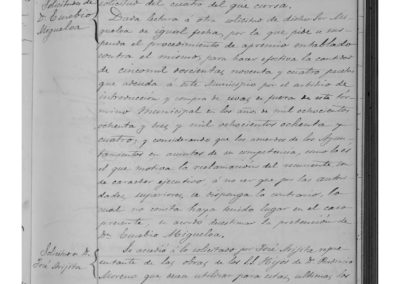 Solicitud de
D. Eusebio
Migueloa
solicitud del cuatro del que cursa.
Dada lectura á otra solicitud de dicho Sr. Mi-
gueloa de igual fecha, por la que pide se sus-
penda el procedimiento de apremio entablado
contra el mismo, para hacer efectiva la cantidad
de cinco mil doscientas noventa y cuatro pesetas
que adeuda á este Municipio por el arbitrio de
introduccion y compra de uvas de fuera de este tér-
mino Municipal en los años de mil ochocientos
ochenta y tres y mil ochocientos ochenta y
cuatro; y considerando que los acuerdos de los Ayun-
tamientos en asuntos de su competencia, como lo es
el que motiva la reclamacion del recurrente son
de caracter ejecutivo á no ser que por las auto-
ridades superiores se disponga lo contrario, lo
cual no consta haya tenido lugar en el caso
presente, se acordó desestimar la pretension de
D. Eusebio Migueloa.
Solicitud D.
José
Se accedió á lo solicitado por José repre-
sentante de las obras de los Hijos de D. Federico
Moreno que desea utilizar para estas, últimas, los